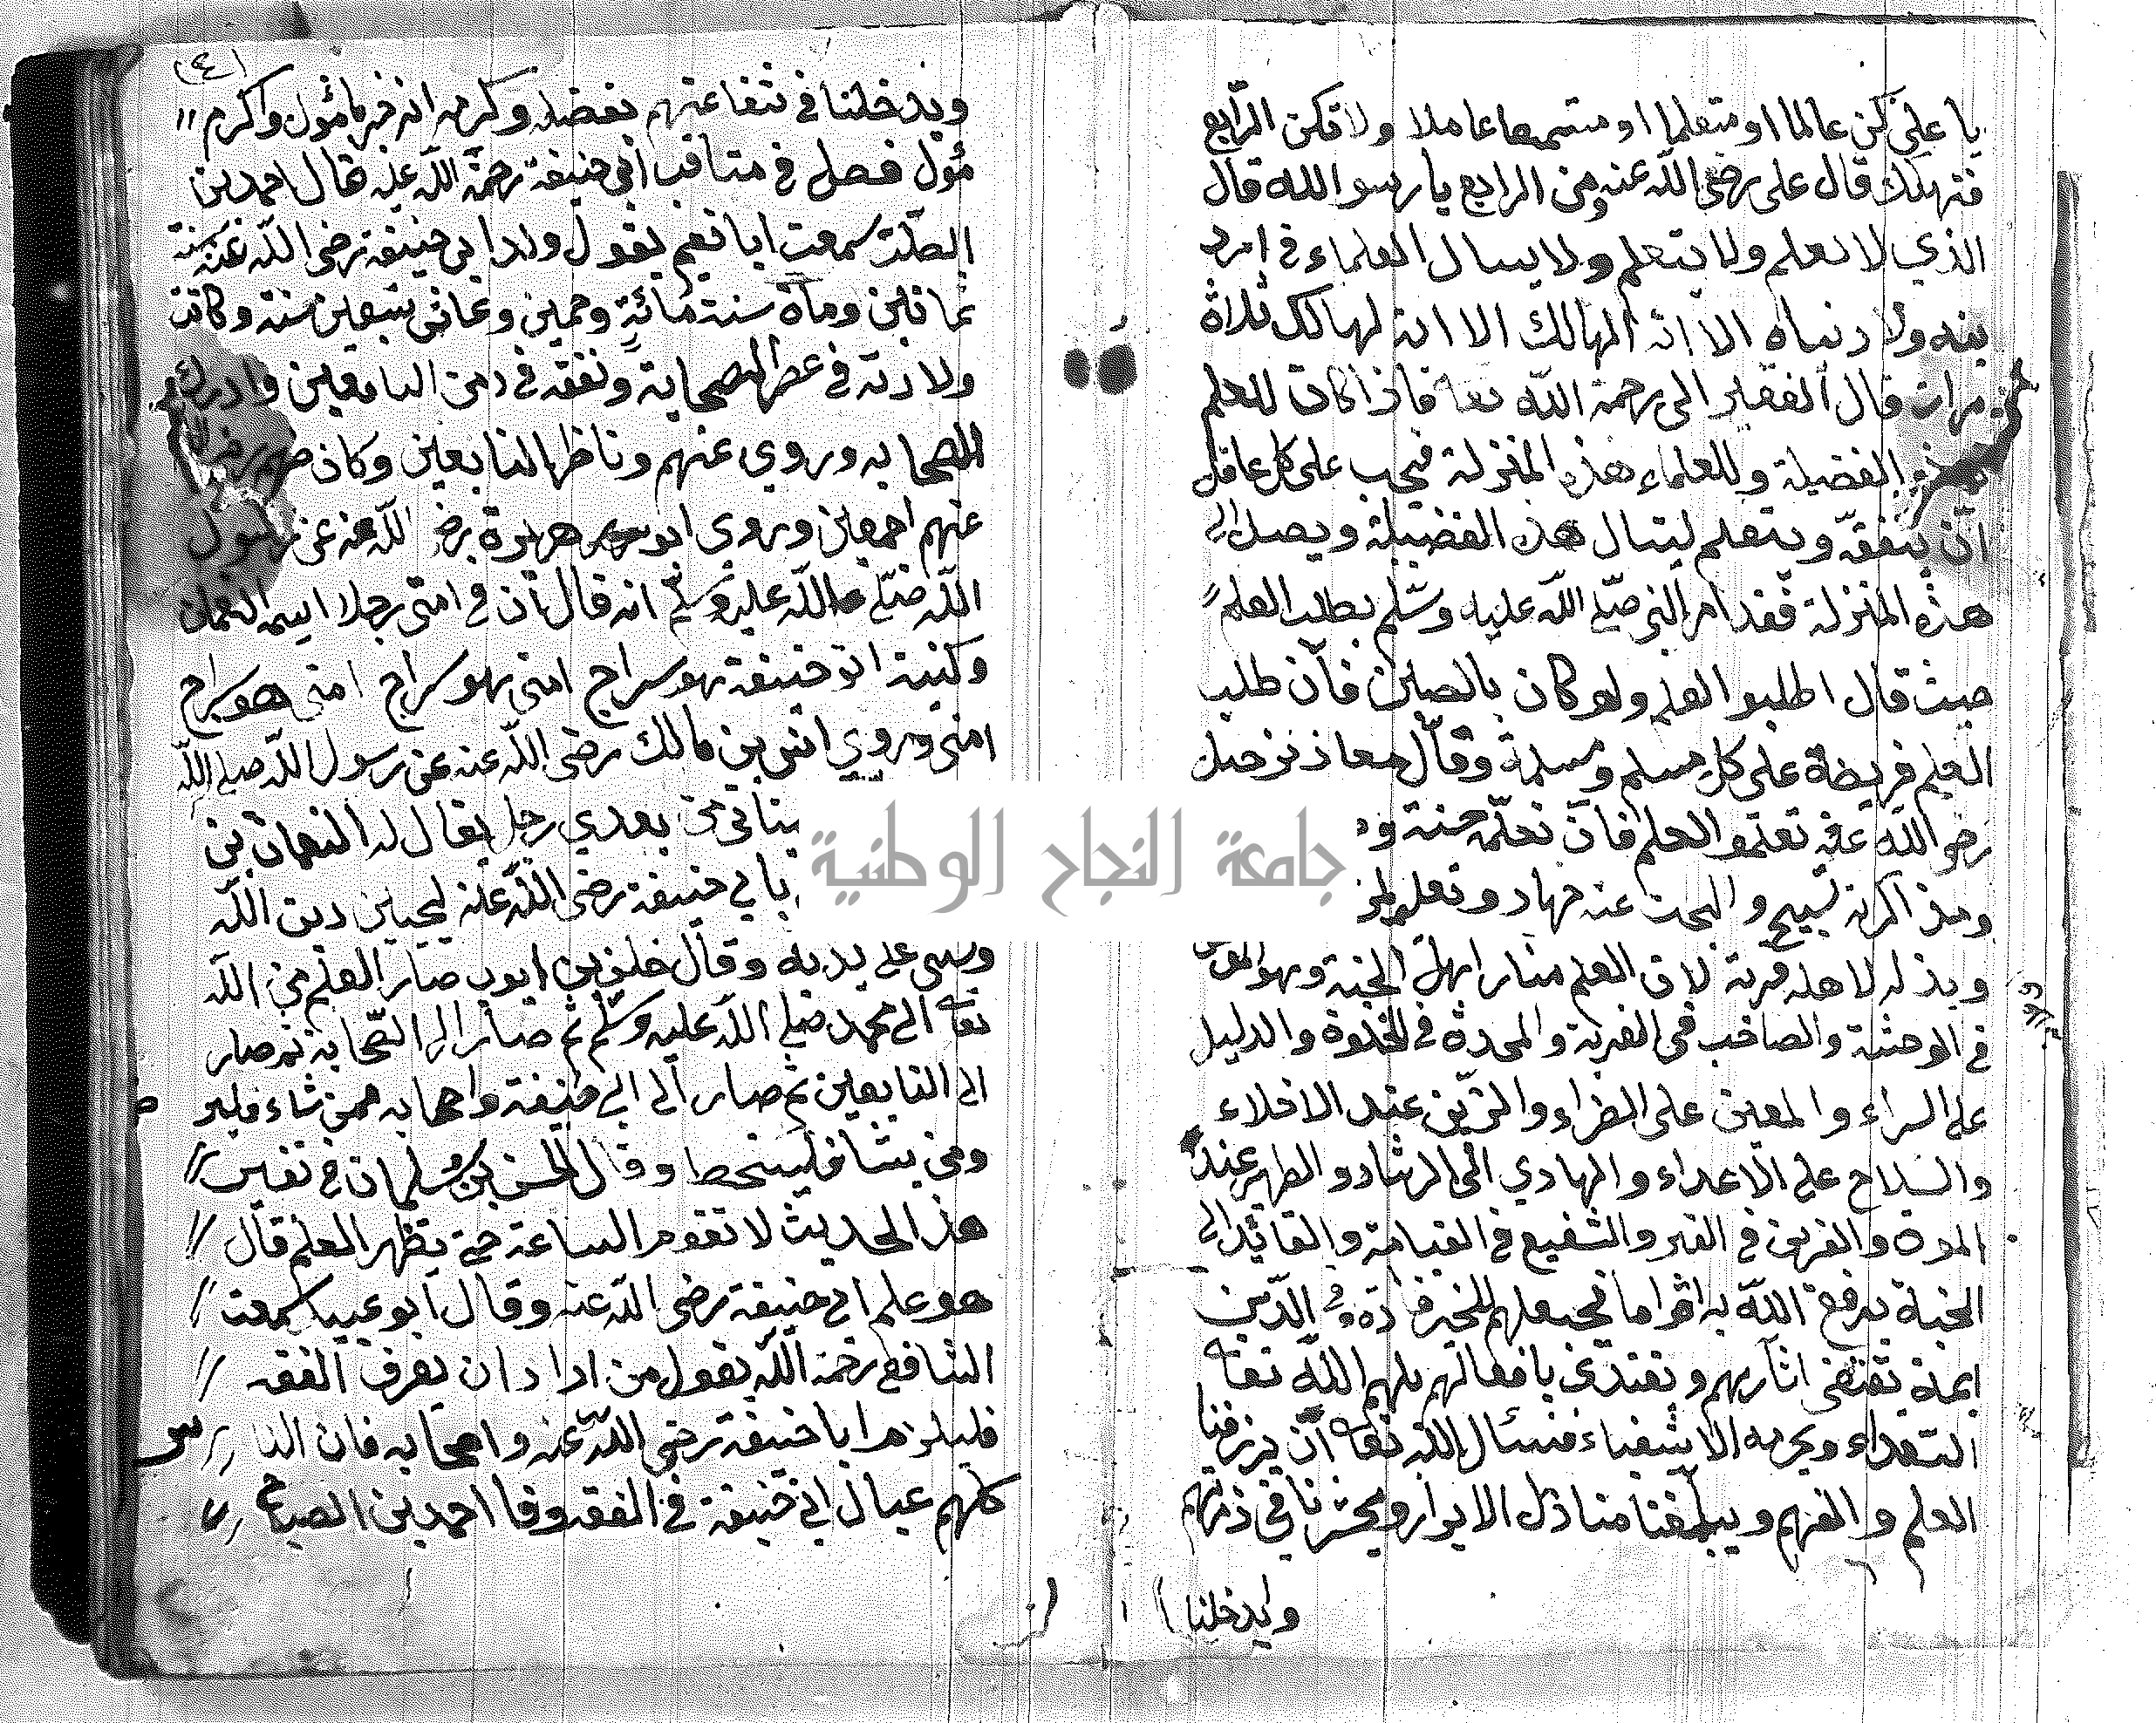 يا علي كن عالما او متعلما او مستمعا عاملا ولا تكن الرابع
فتهلك قال علي رضي الله عنه ومن الرابع يا رسو الله قال
الذي لا يعلم ولا يتعلم ولا يسال العلماء في امر د
ينه ولا دنياه الا انه الهالك الا انه لهالك ثلاثة
مرات قال الفقير الى رحمة الله تعا فاذا كان للعلم
الفضيلة وللعلماء هذه المنزلة فيجب على كل عاقل
ان يتفقه ويتعلم لينال هذه الفضيلة ويصل الى
هذه المنزلة فقد امر النبي صلى الله عليه وسلم بطلب العلم
حيث قال اطلبوا العلم ولو كان بالصين فان طلب
العلم فريضة على كل مسلم ومسلمة وقال معاذ بن جبل
رضي الله عنه تعلموا العلم فان تعلمه حسنة و
ومذاكرته تسبيح والبحث عنه جهاد وتعليمه
وبذله لاهله قربة لان العلم منار اهل الجنة وهو
في الوحشة والصاحب في الغربة والمحدث في الخلوة والدليل
على السراء والمعين على الضراء والزين عند الاخلاء
والسلاح على الاعداء والهادي الى الرشاد والظهير عند
المودة والقرين في القبر والشفيع في القيامة والقائد الى
الجنة يرفع الله به اقواما فيجعلهم للخير قادة وفي الدين
ايمة تقتفى اثارهم وتقتدى بافعالهم يلهم الله تعا
السعداء ويحرمه الاشقياء فنسال الله تعا ان يرزقنا
العلم والفهم ويبلغنا منازل الابرار ويحشرنا في زمرتهم
ويدخلنا
(٤)
ويدخلنا في شفاعتهم بفضله وكرمه انه خير مأمول واكرم
مؤل فصل في مناقب ابي حنيفة رحمة الله عليه قال احمد بن
الصلت سمعت ابا نعيم يقول ولد ابي حنيفة رضي الله عنه سنة
ثمانين وماة سنة مائة وخمسين وعاش سبعين سنة وكانت
ولادته في عصر الصحابة وتفقه في زمن التابعين وادرك
الصحابه وروي عنهم وناظر التابعين وكان
عنهم اجمعين وروي ابو هريرة رضي الله عنه عن رسول
الله صلى الله عليه وسلم انه قال ان في امتي رجلا اسمه النعمان
وكنيته ابو حنيفة هو سراج امتي هو سراج امتي هو سراج
امتي وروي انس بن مالك رضي الله عنه عن رسول الله صلى الله
يناتي من بعدي رجل يقال له النعمان بن
بابي حنيفة رضي الله عنه ليحيين دين الله
وسنتي على يديه وقال خلف بن ايوب صار العلم من الله
تعا الى محمد صلى الله عليه وسلم ثم صار الى الصحابه ثم صار
الى التابعين ثم صار الى ابي حنيفة واصحابه فمن شاء فلير
ومن يشا فليسخط وقال الحسن بن سليمان في تفسير
هذا الحديث لا تقوم الساعة حتى يظهر العلم قال
هو علم ابي حنيفة رضي الله عنه وقال ابو عبيد سمعت
الشافعي رحمة الله يقول من اراد ان يعرف الفقه
فليلزم ابا حنيفة رضي الله عنه واصحابه فان النا س
كلهم عيال ابي حنيفة في الفقه وقا احمد بن الصباح
جامعة النجاح الوطنية